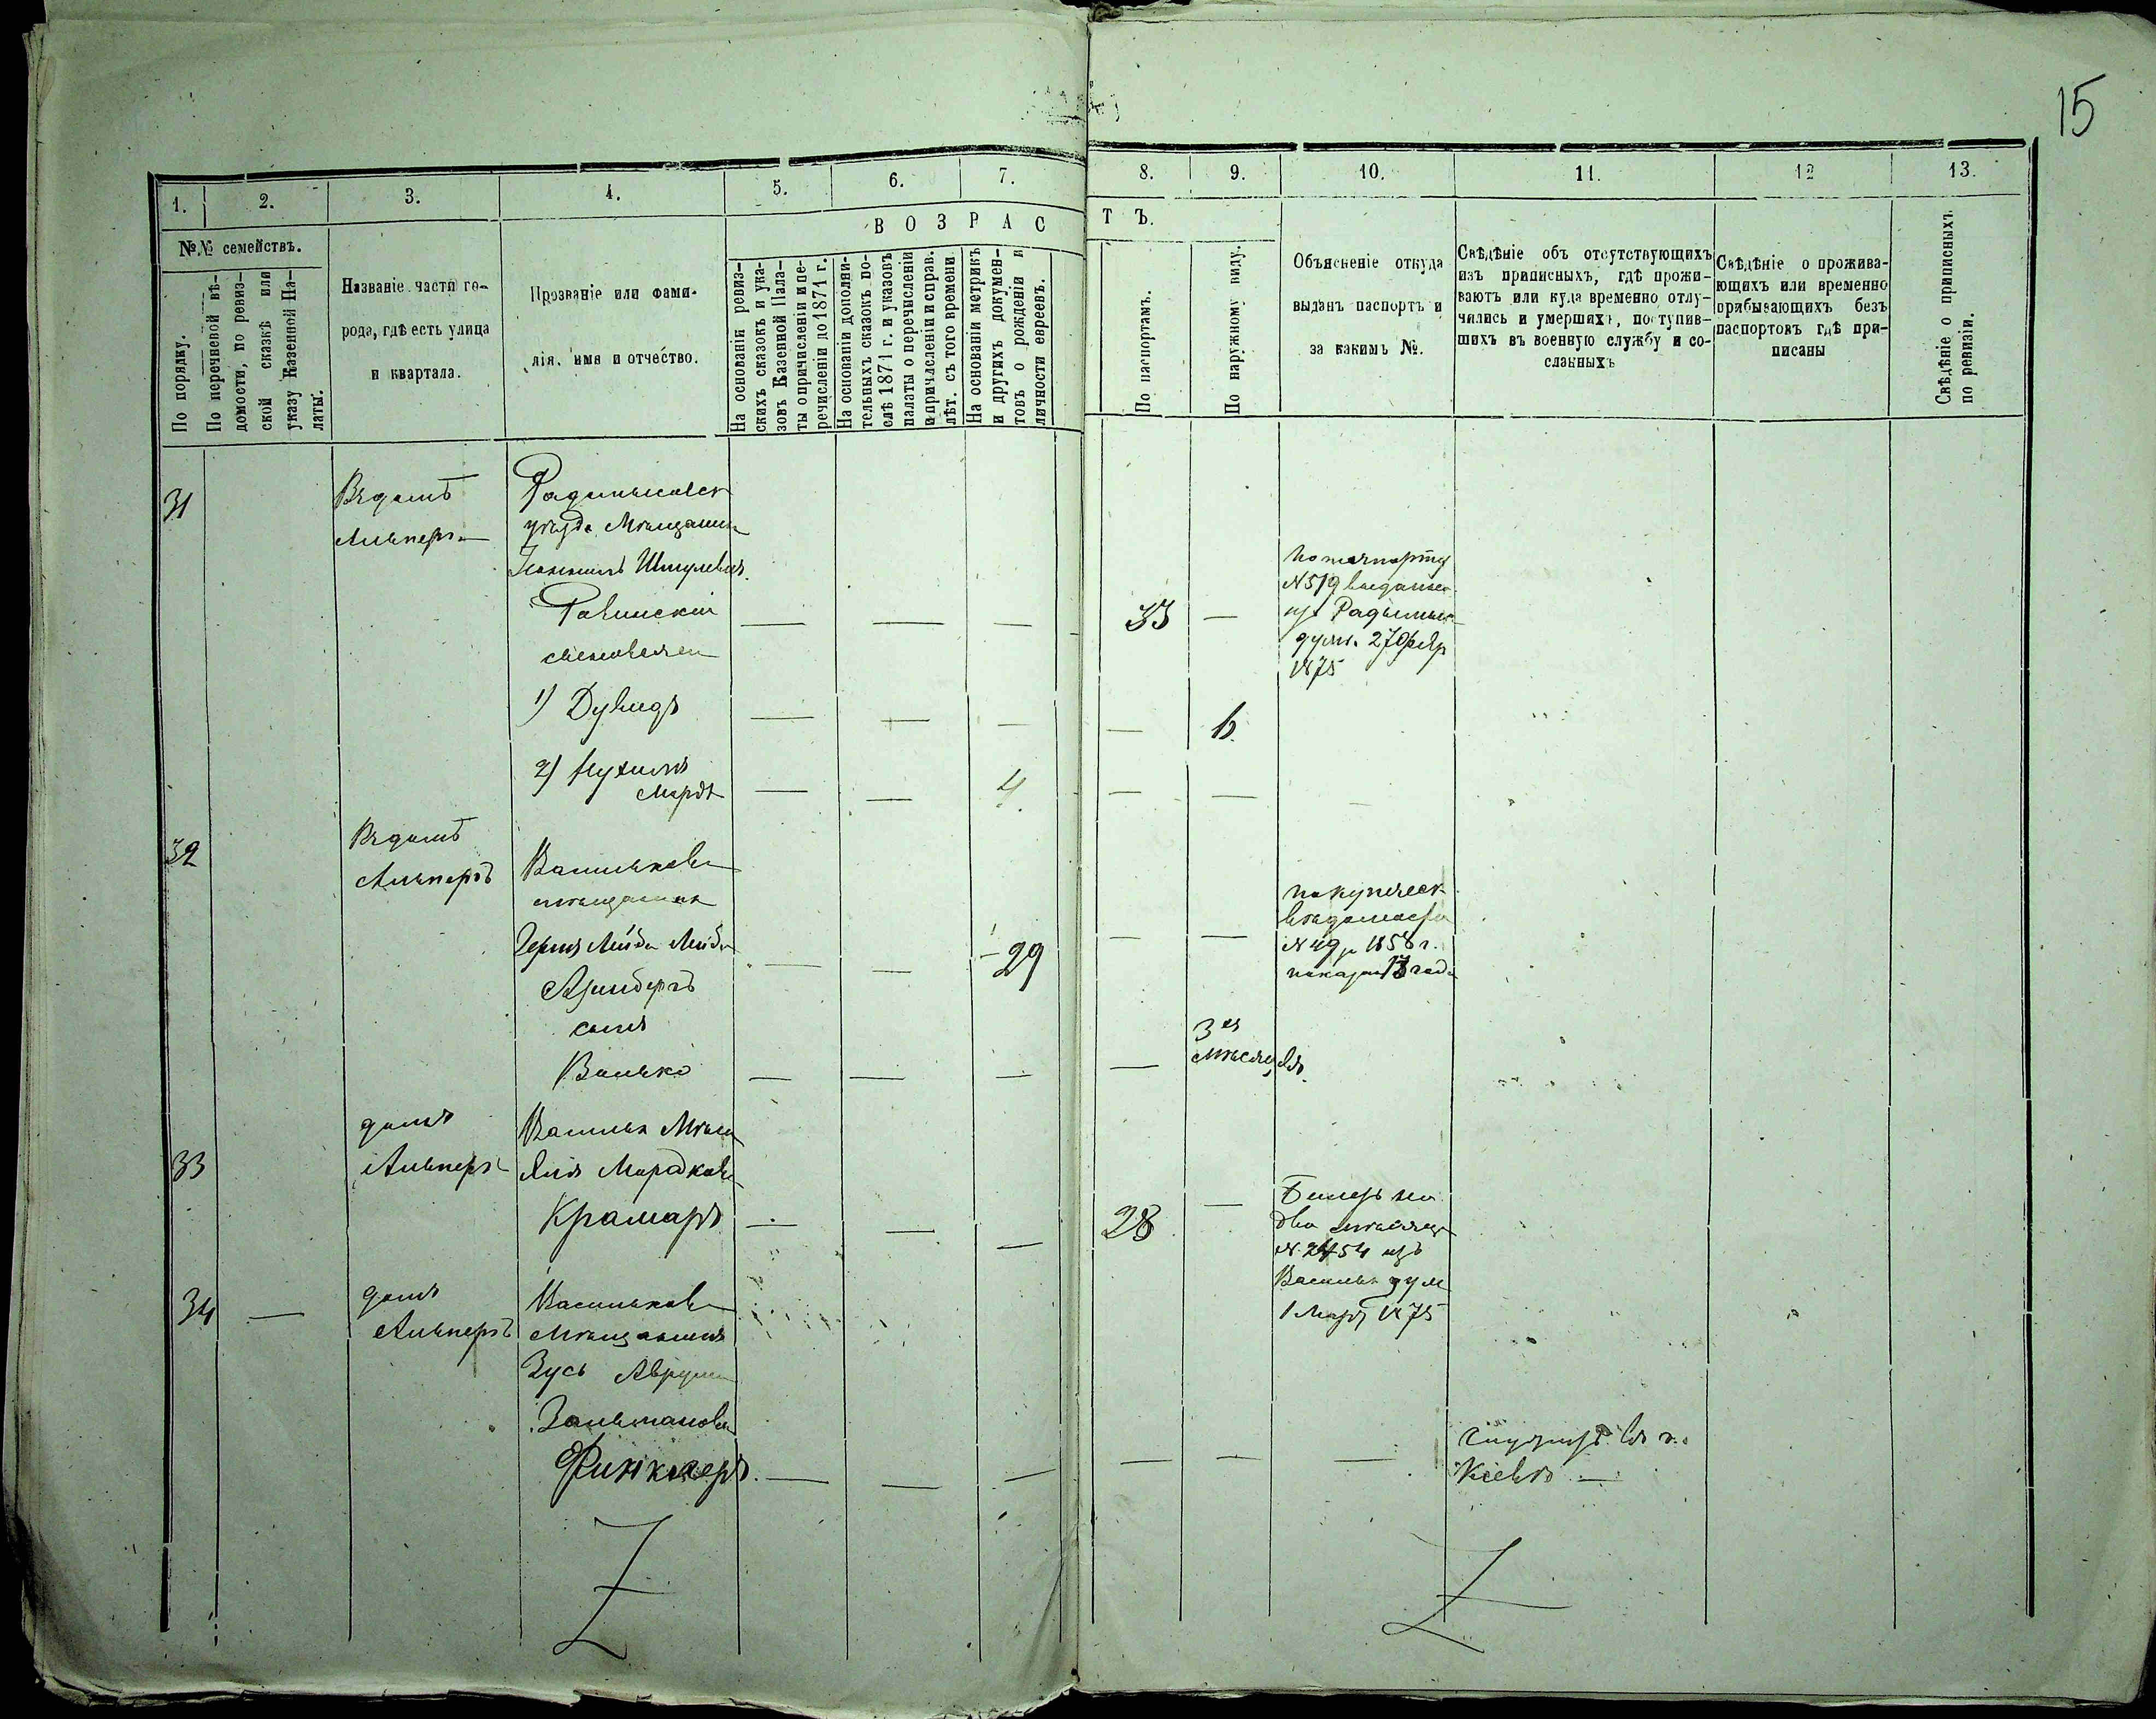 15
1.
2.
3.
4.
5.
6.
7.
8.
9.
10.
11.
12
13.
№№ семействъ.
По порядку.
По перечневой вѣ-
домости, по ревиз-
ской сказкѣ или
указу Казенной Па-
латы.
Названіе части го-
рода, гдѣ есть улица
и квартала.
Прозваніе или фами-
лія, имя и отчество.
ВОЗРАС
ТЪ.
На основаніи ревиз-
скихъ сказокъ и ука-
зовъ Казенной Пала-
ты о причисленіи и пе-
речисленіи до 1871 г.
На основаніи дополни-
тельныхъ сказокъ по-
слѣ 1871 г. и указовъ
палаты о перечисленіи
и причисленіи и справ.
лѣт. съ того времени.
На основаніи метрикъ
и другихъ докумен-
товъ о рожденіи и
личности евреевъ.
По паспортамъ.
По наружному виду.
Объясненіе откуда
выданъ паспортъ и
за какимъ №.
Свѣдѣніе объ отсутствующихъ
изъ приписныхъ, гдѣ прожи-
ваютъ или куда временно отлу-
чились и умершихъ, поступив-
шихъ въ военную службу и со-
сланныхъ
Свѣдѣніе о прожива-
ющихъ или временно
прибывающихъ безъ
паспортовъ гдѣ при-
писаны
Свѣдѣніе о приписныхъ
по ревизіи.
31
Въ домѣ
Альперъ
Радомысльск
уѣзда Мѣщанин
Шмулевъ
Равинскій
сыновья
33 —
По паспорту
№ 519 выданно
изъ Радомысл
думы 27 Февр
1875
1) Дувидъ
6.
2) Нухимъ
Мордк
4
32
Въ домѣ
Альперъ
Васильков
мѣщанинъ
Лейба Лейб
Азинберъ
29
по купическ
вѣдомости
№ 49 1858 г.
показан 13 года
сынъ
Волько
3 ех
мѣсяцевъ
33
домъ
Альперъ
Васильк Мѣщ
Эля Мордков
Крамаръ
28
Билетъ на
два мѣсяца
№ 2454 изъ
Васильк дум
1 Март 1875
34 —
домъ
Альперъ
Васильков
Мѣщанинъ
Зусь Аврум
Зальманов
Финкперъ
Служитъ въ г.
Кіевѣ —